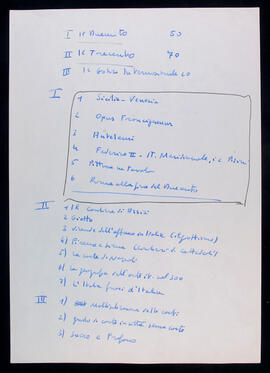 I Il Duecento 50
II Il Trecento 70
III Il Gotico Internazionale 60
I
1 Sicilia - Venezia
2 Opus Francigenum
3 Antelami
4 Federico II - It. Meridionale, i Pisani
5 Pittura su tavola
6 Roma alla fine del Duecento
II
1 Il Cantiere di Assisi
2 Giotto
3) vicende dell'affresco in Italia (il giottismo)
4) Pisa e Siena (cantieri di Cattedrali)
5) La corte di Napoli
6) La geografia dell'arte it. nel 300
7) L'Italia fuori d'Italia
III
1) nelle corti
2) corti e città senza corte
3) Sacro e Profano